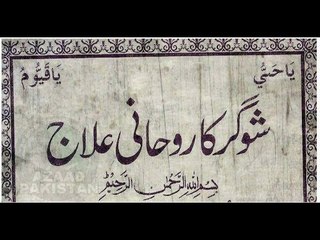 یَا حَیُّ یَا قَیُّومُ
شوگر کا روحانی علاج
بِسْمِ اللهِ الرَّحْمٰنِ الرَّحِیْمِ
AZAAD
PAKISTAN